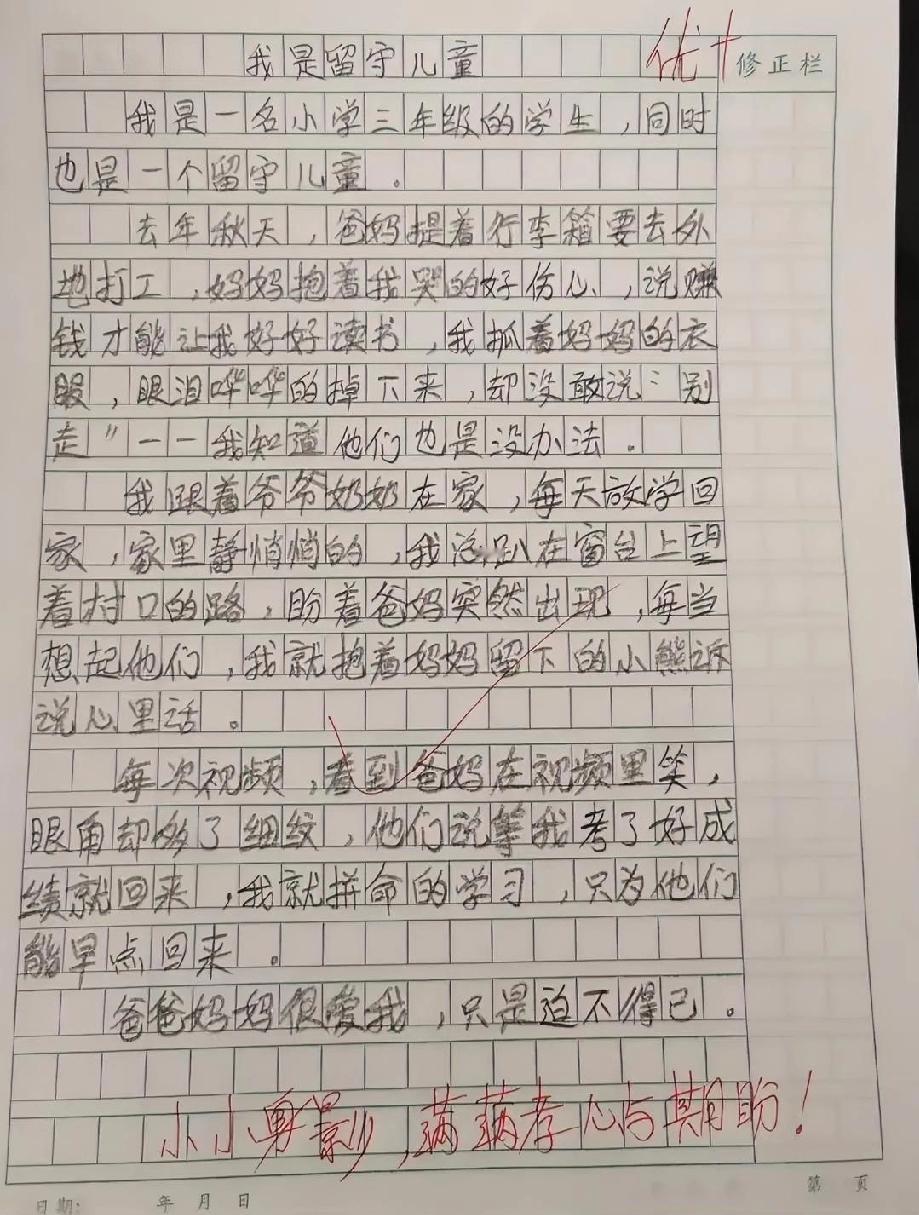 我是留守儿童
优+
修正栏
我是一名小学三年级的学生，同时
也是一个留守儿童。
去年秋天，爸妈提着行李箱要去外
地打工，妈妈抱着我哭的好伤心，说赚
钱才能让我好好读书，我抓着妈妈的衣
服，眼泪哗哗的掉下来，却没敢说“别
走”——我知道他们也是没办法。
我跟着爷爷奶奶在家，每天放学回
家，家里静悄悄的，我总趴在窗台上望
着村口的路，盼着爸妈突然出现，每当
想起他们，我就抱着妈妈留下的小熊诉
说心里话。
每次视频，看到爸妈在视频里笑，
眼角却多了细纹，他们说等我考了好成
绩就回来，我就拼命的学习，只为他们
能早点回来。
爸爸妈妈很爱我，只是迫不得已。
小小身影，满满孝心与期盼！
日期： 年 月 日
第 页